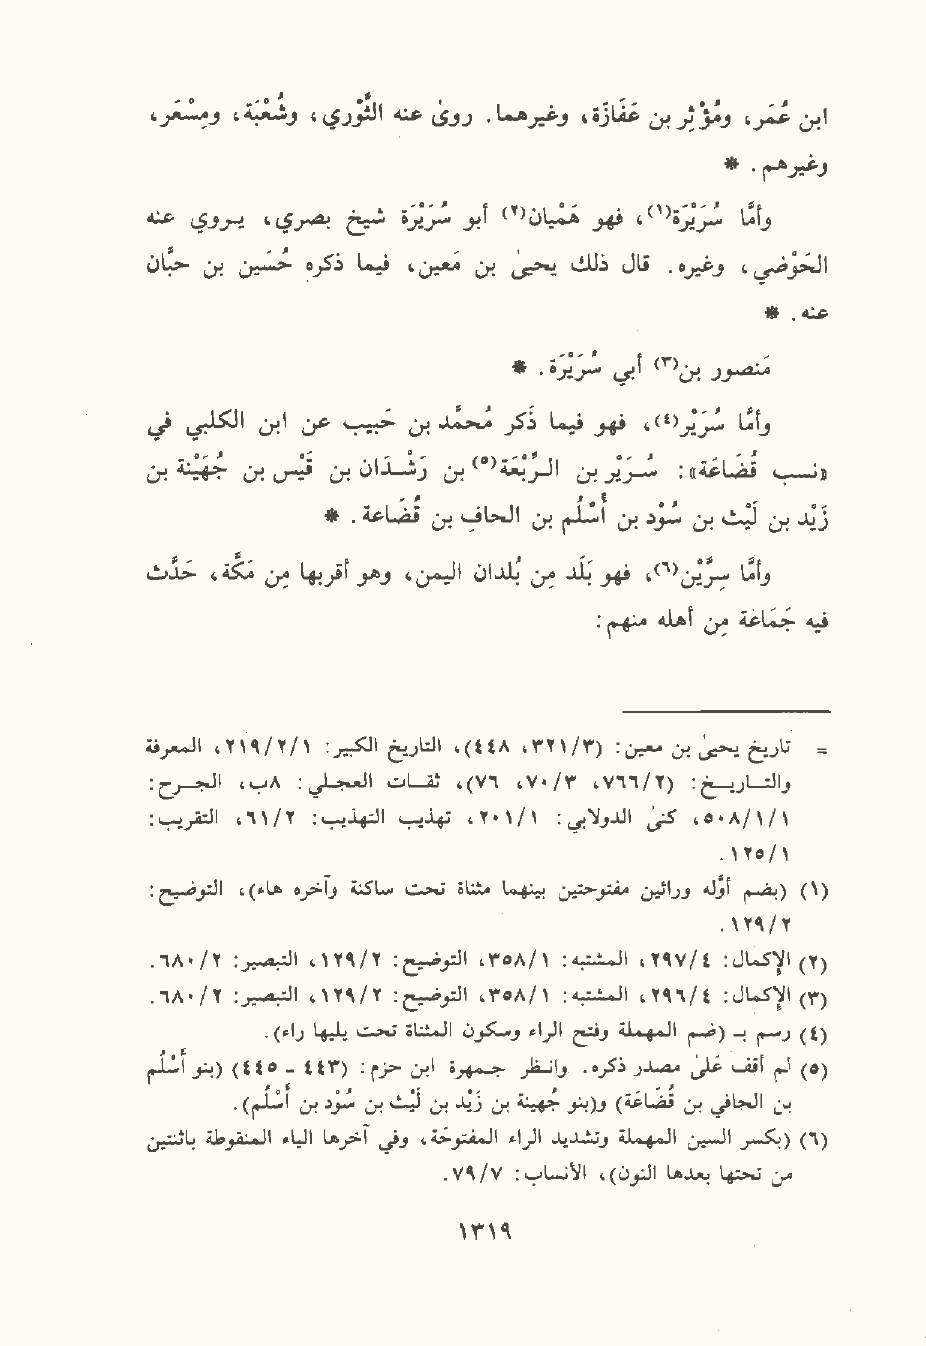 ابن عُمَر، ومُؤْثِر بن عَفَازَة، وغيرهما. روىٰ عنه الثَّوْري، وشُعْبَة، ومِسْعَر،
وغيرهم. *
وأمَّا سُرَيْرَة(١)، فهو هَمْيَان(٢) أبو سُرَيْرَة شيخ بصري، يـروي عنه
الحَوْضي، وغيره. قال ذلك يحيىٰ بن مَعين، فيما ذكره حُسَين بن حبَّان
عنه. *
مَنصور بن(٣) أبي سُرَيْرَة. *
وأمَّا سُرَيْر(٤)، فهو فيما ذَكر مُحمَّد بن حَبيب عن ابن الكلبي في
«نسب قُضَاعَة»: سُرَيْر بن الرَّبْعَة(٥) بن رَشْدَان بن قَيْس بن جُهَيْنة بن
زَيْد بن لَيْث بن سُوْد بن أَسْلُم بن الحاف بن قُضَاعة. *
وأمَّا سِرَّيْن(٦)، فهو بَلَد مِن بُلدان اليمن، وهو أقربها مِن مَكَّة، حَدَّث
فيه جَمَاعَة مِن أهله منهم:
= تاريخ يحيىٰ بن معين: (٣٢١/٣، ٤٤٨)، التاريخ الكبير: ٢١٩/٢/١، المعرفة
والتـاريـخ: (٧٦٦/٢، ٧٠/٣، ٧٦)، ثقـات العجـلي: ٨ب، الجـرح:
٥٠٨/١/١، كنىٰ الدولابي: ٢٠١/١، تهذيب التهذيب: ٦١/٢، التقريب:
١٢٥/١.
(١) (بضم أوَّله ورائين مفتوحتين بينهما مثناة تحت ساكنة وآخره هاء)، التوضيح:
١٢٩/٢.
(٢) الإكمال: ٢٩٧/٤، المشتبه: ٣٥٨/١، التوضيح: ١٢٩/٢، التبصير: ٦٨٠/٢.
(٣) الإكمال: ٢٩٦/٤، المشتبه: ٣٥٨/١، التوضيح: ١٢٩/٢، التبصير: ٦٨٠/٢.
(٤) رسم بـ (ضم المهملة وفتح الراء وسكون المثناة تحت يليها راء).
(٥) لم أقف علىٰ مصدر ذكره. وانظر جمهرة ابن حزم: (٤٤٣ - ٤٤٥) (بنو أَسْلُم
بن الحافي بن قُضَاعة) و(بنو جُهينة بن زَيْد بن لَيْث بن سُوْد بن أَسْلُم).
(٦) (بكسر السين المهملة وتشديد الراء المفتوحة، وفي آخرها الياء المنقوطة باثنتين
من تحتها بعدها النون)، الأنساب: ٧٩/٧.
١٣١٩